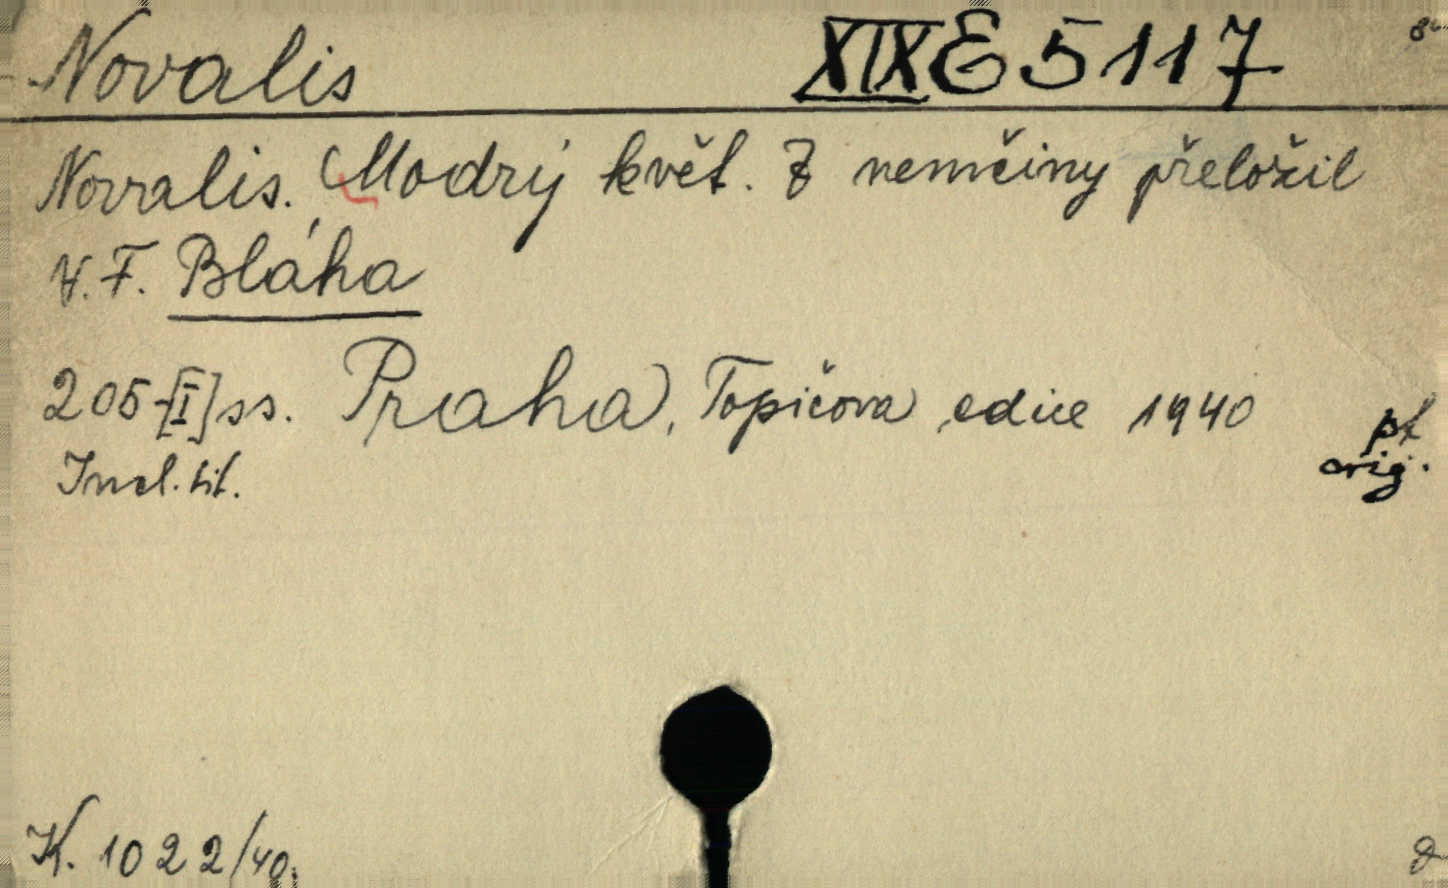 Novalis XIX E 5117 8°
Novalis. Modrý květ. Z nemčiny přeložil
V. F. Bláha
205-[I] ss. Praha, Topičova edice 1940
pt
orig.
Incl. tit.
K. 1022/40.